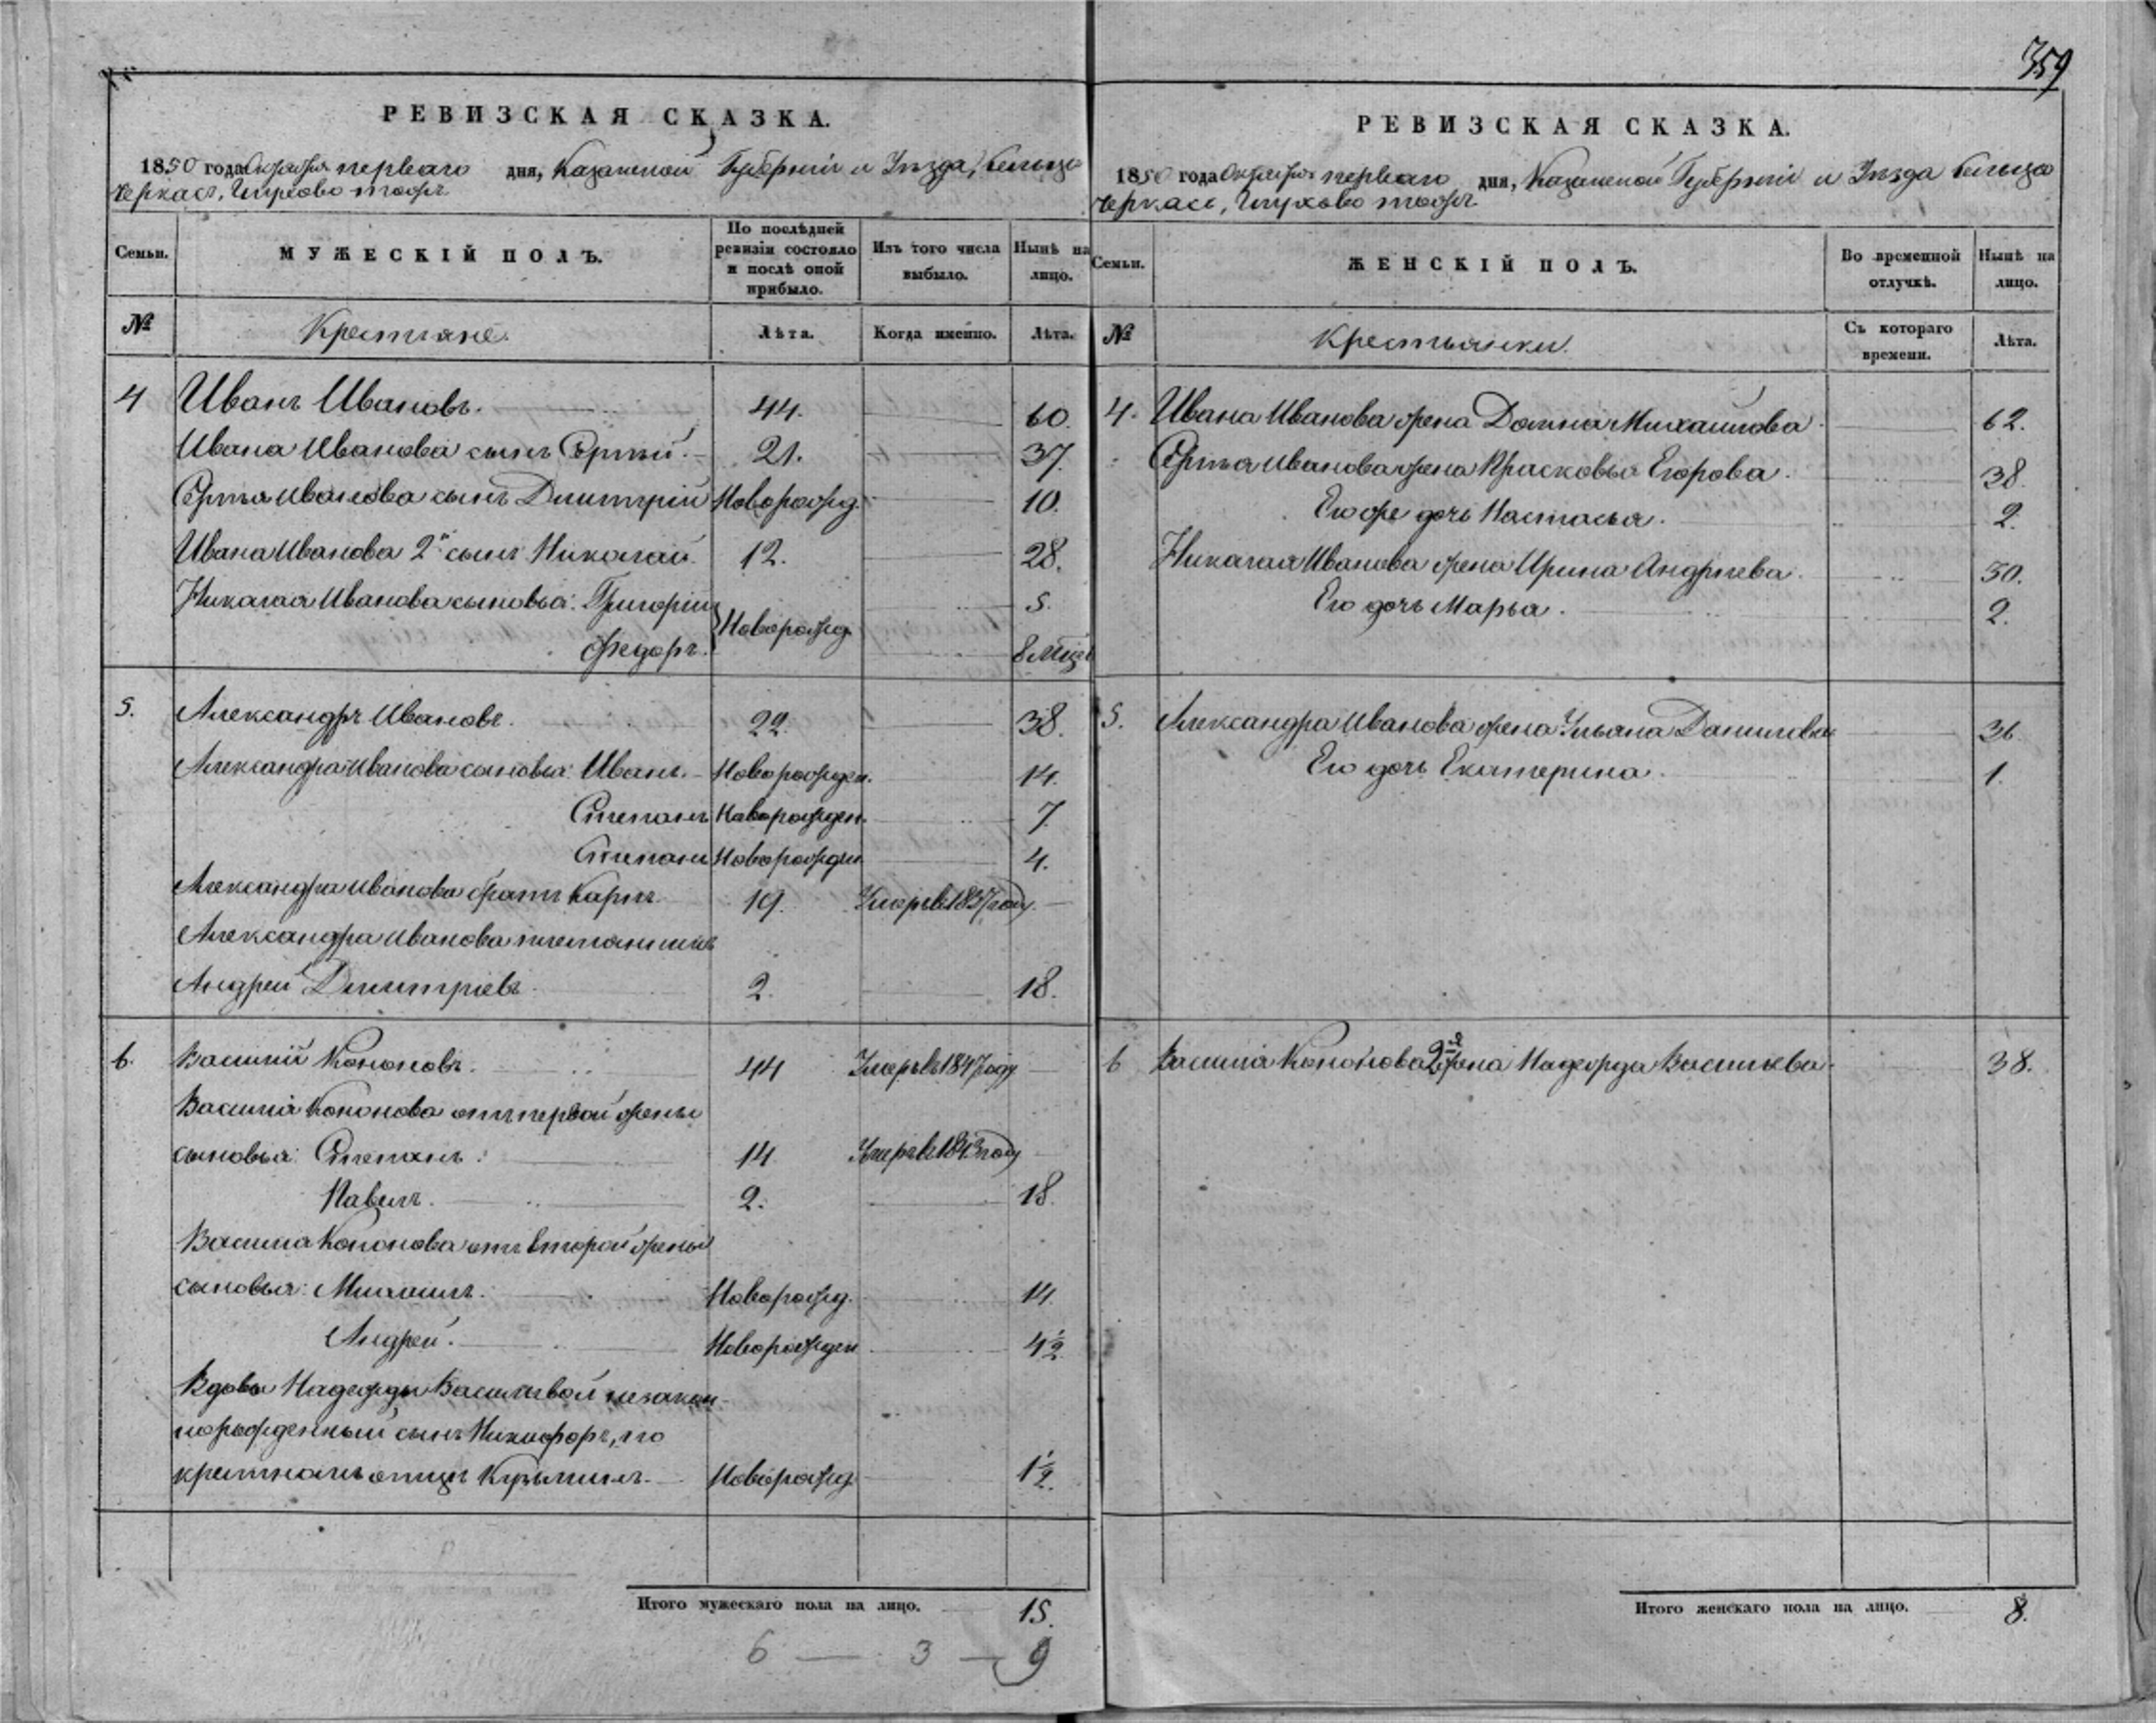 359
РЕВИЗСКАЯ СКАЗКА.
1850 года Октября первого дня, Казанской Губернiи и Уѣзда, сельца
Черкасъ, Чирково тожъ
Семьи.
МУЖЕСКIЙ ПОЛЪ.
По послѣдней ревизiи состояло и послѣ оной прибыло.
Изъ того числа выбыло.
Нынѣ на лицо.
№ Крестьяне. Лѣта. Когда именно. Лѣта.
4 Иванъ Ивановъ. 44. 60.
Ивана Иванова сынъ Сергѣй. 21. 37.
Сергѣя Иванова сынъ Дмитрiй Новорожд. 10.
Ивана Иванова 2й сынъ Николай. 12. 28.
Николая Иванова сыновья: Григорiй 5.
Новорожд.
Ѳедоръ. 8 мѣцъ
5. Александръ Ивановъ. 22. 38.
Александра Иванова сыновья: Иванъ. Новорожден. 14.
Степанъ Новорожден. 7.
Степанъ Новорожден 4.
Александра Иванова братъ Карпъ 19. Умеръ в 1837 году.
Александра Иванова племянникъ
Андрей Дмитрiевъ 2. 18.
6. Василiй Кононовъ. 44 Умеръ в 1847 году
Василiя Кононова отъ первой жены
сыновья: Степанъ. 14 Умеръ в 1843 году
Павелъ. 2. 18.
Василiя Кононова отъ второй жены
сыновья: Михаилъ. Новорожд. 14.
Андрей. Новорожден 4½
Вдовы Надежды Васильевой незакон-
норожденный сынъ Никифоръ, по
крестномъ отцѣ Кузьминъ. Новорожд. 1½.
Итого мужескаго пола на лицо. 15.
6 — 3 — 9
РЕВИЗСКАЯ СКАЗКА.
1850 года Октября первого дня, Казанской Губернiи и Уѣзда сельца
Черкасъ, Чирково тожъ
Семьи.
ЖЕНСКIЙ ПОЛЪ.
Во временной отлучкѣ.
Нынѣ на лицо.
№ Крестьянки. Съ котораго времени. Лѣта.
4. Ивана Иванова жена Домна Михайлова 62.
Сергѣя Иванова жена Прасковья Егорова. 38.
Его же дочь Настасья. 2.
Николая Иванова жена Ирина Андрѣева. 30.
Его дочь Марья. 2.
5. Александра Иванова жена Ульяна Данилова 36
Его дочь Екатерина. 1.
6 Василiя Кононова 2я жена Надежда Васильева. 38.
Итого женскаго пола на лицо. 8.